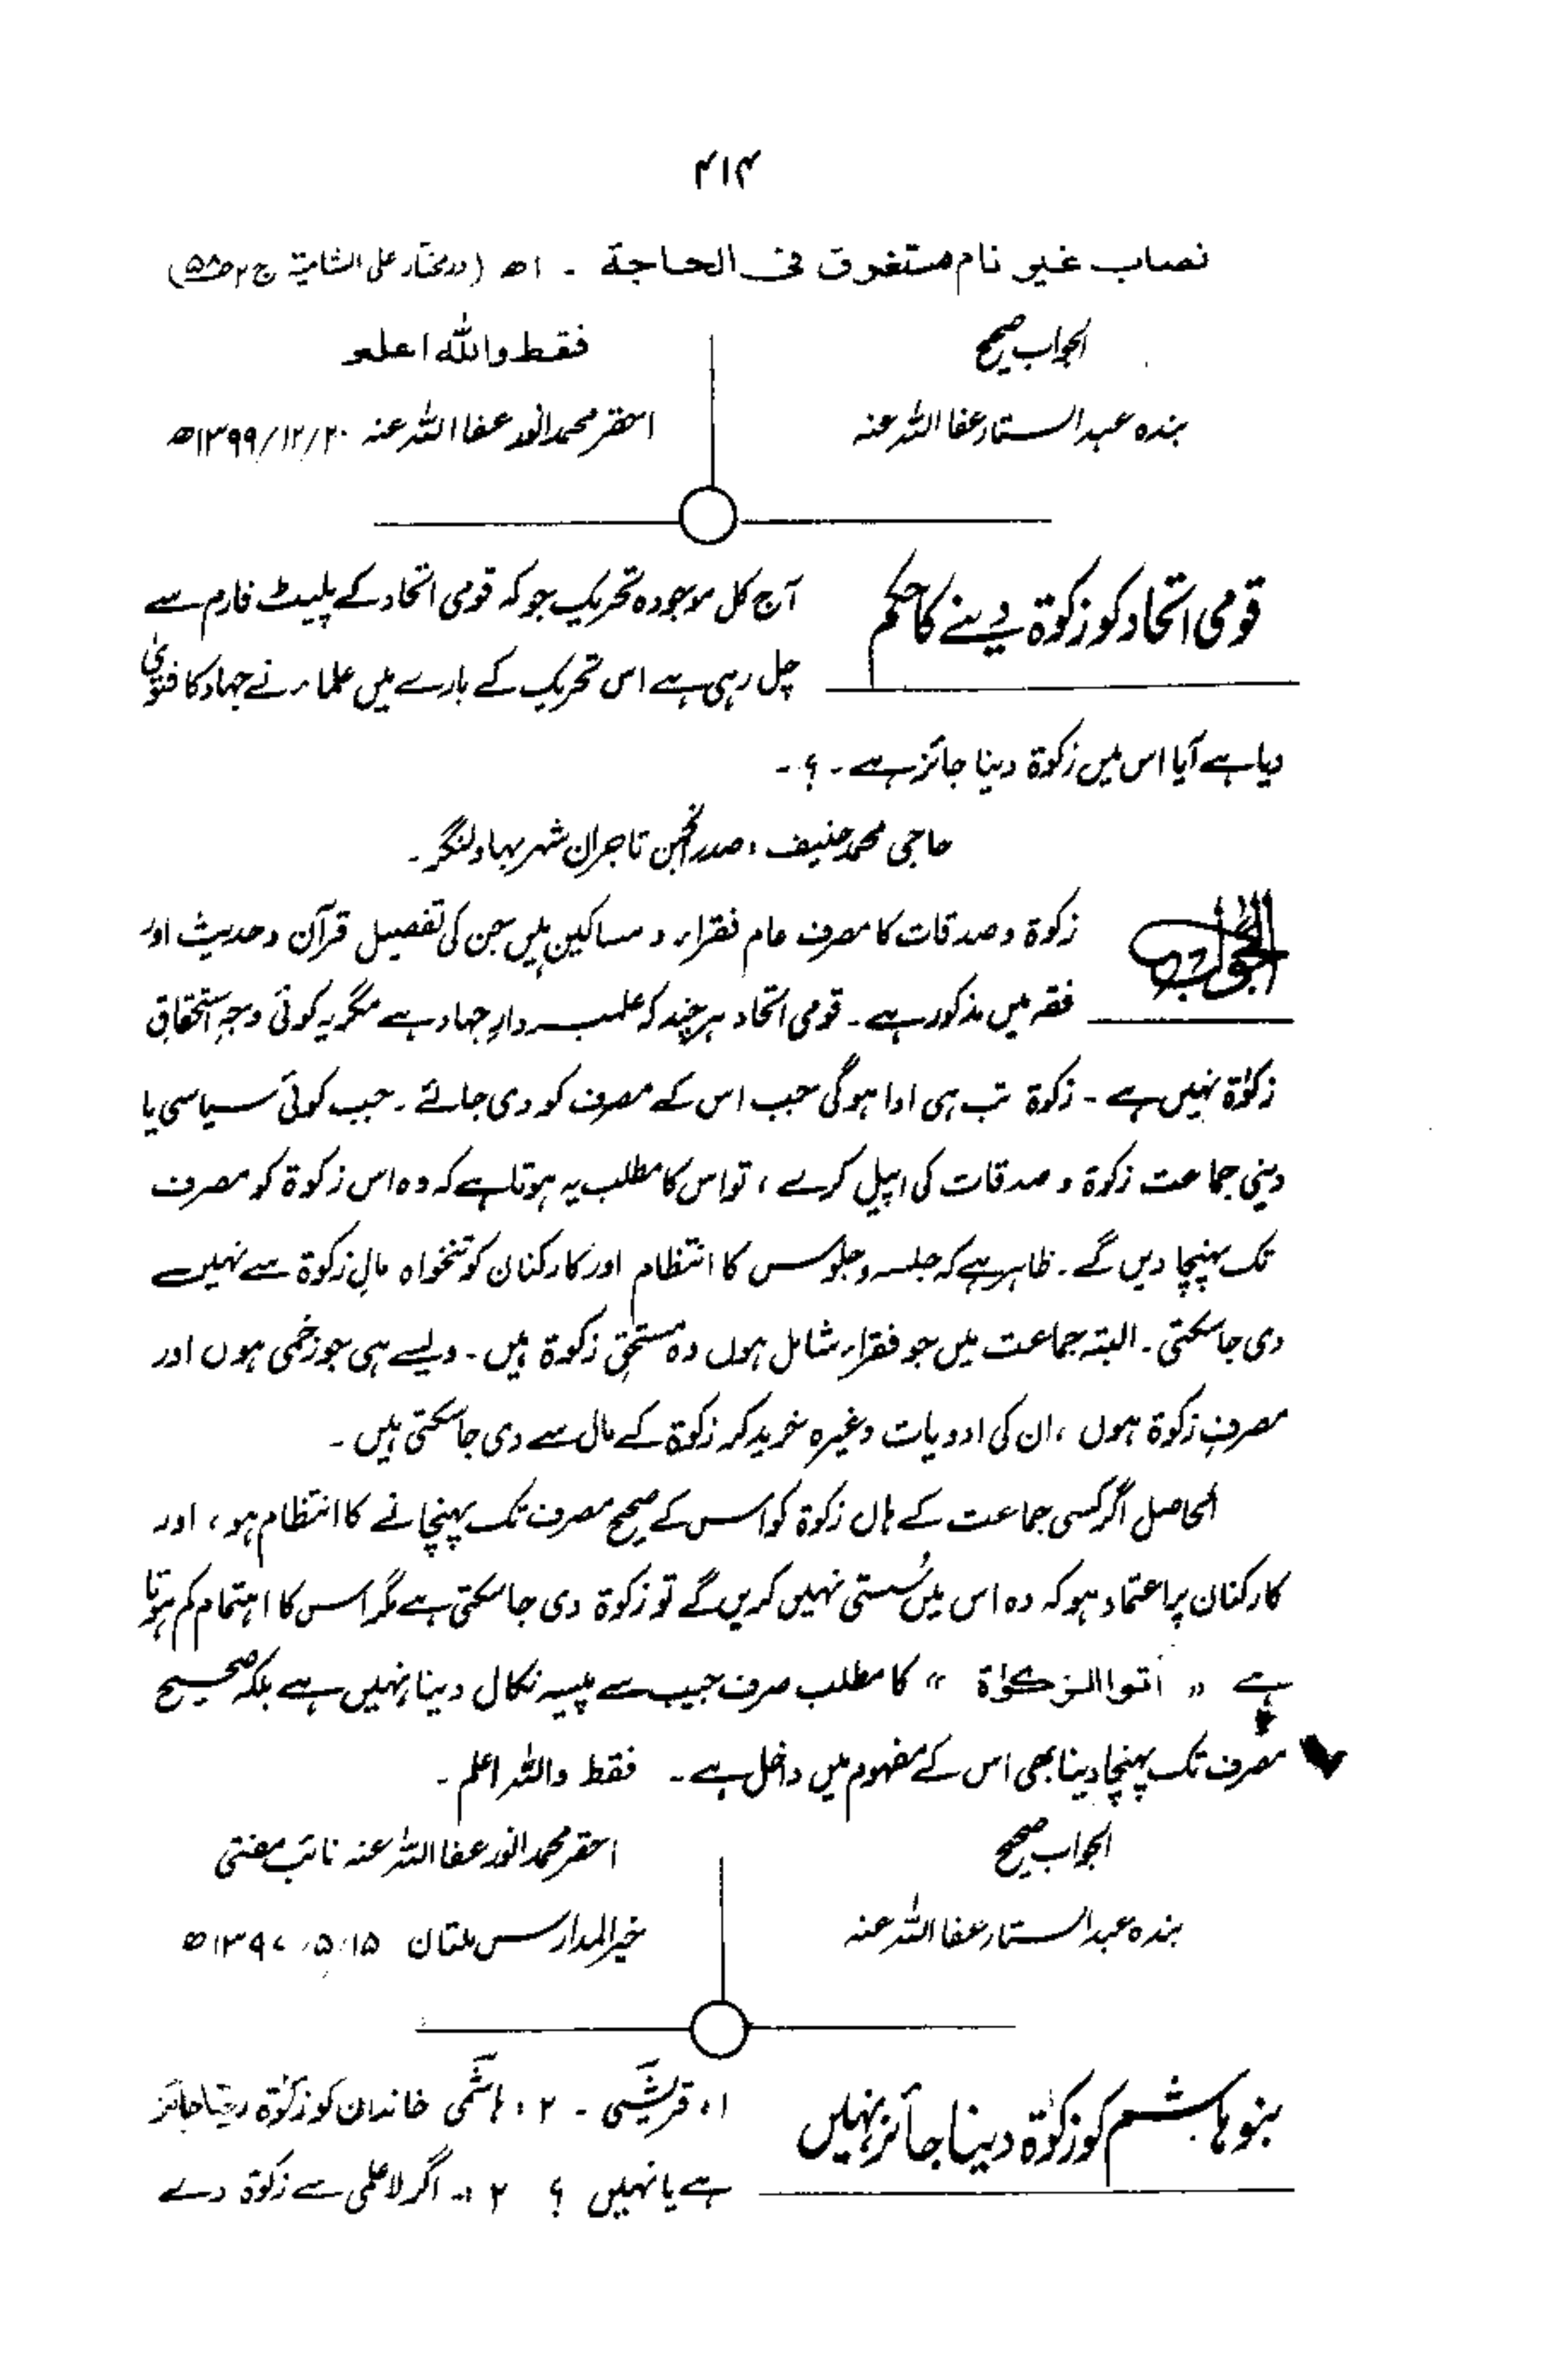 ۴۱۴
نصاب غیر نام مستغرق فی الحاجة ۔ اھ (درمختار علی الشامیة ج۲ ص۵۸)
الجواب صحیح
بندہ عبدالستار عفا اللہ عنہ
فقط واللہ اعلم
احقر محمد انور عفا اللہ عنہ ۲۰/۱۲/۱۳۹۹ھ
قومی اتحاد کو زکوٰۃ دینے کا حکم
آج کل موجودہ تحریک جو کہ قومی اتحاد کے پلیٹ فارم سے
چل رہی ہے اس تحریک کے بارے میں علماء نے جہاد کا فتویٰ
دیا ہے آیا اس میں زکوۃ دینا جائز ہے ۔ ؟ ۔
حاجی محمد حنیف ، صدر انجمن تاجران شہر بہاولنگر ۔
الجواب
زکوۃ و صدقات کا مصرف عام فقراء و مساکین ہیں جن کی تفصیل قرآن و حدیث اور
فقہ میں مذکور ہے ۔ قومی اتحاد ہر چند کہ علمبردارِ جہاد ہے مگر یہ کوئی وجہِ استحقاقِ
زکوٰۃ نہیں ہے ۔ زکوۃ تب ہی ادا ہوگی جب اس کے مصرف کو دی جائے ۔ جب کوئی سیاسی یا
دینی جماعت زکوۃ و صدقات کی اپیل کرے ، تو اس کا مطلب یہ ہوتا ہے کہ وہ اس زکوۃ کو مصرف
تک پہنچا دیں گے ۔ ظاہر ہے کہ جلسہ و جلوس کا انتظام اور کارکنان کو تنخواہ مالِ زکوۃ سے نہیں
دی جا سکتی ۔ البتہ جماعت میں جو فقراء شامل ہوں وہ مستحق زکوۃ ہیں ۔ ویسے ہی جو زخمی ہوں اور
مصرفِ زکوۃ ہوں ، ان کی ادویات وغیرہ خرید کر زکوۃ کے مال سے دی جا سکتی ہیں ۔
الحاصل اگر کسی جماعت کے ہاں زکوۃ کو اس کے صحیح مصرف تک پہنچانے کا انتظام ہو ، اور
کارکنان پر اعتماد ہو کہ وہ اس میں سُستی نہیں کریں گے تو زکوۃ دی جا سکتی ہے مگر اس کا اہتمام کم ہوتا
ہے " اٰتوا الزکوٰۃ " کا مطلب صرف جیب سے پیسہ نکال دینا نہیں ہے بلکہ صحیح
مصرف تک پہنچا دینا بھی اس کے مفہوم میں داخل ہے ۔ فقط واللہ اعلم ۔
الجواب صحیح
بندہ عبدالستار عفا اللہ عنہ
احقر محمد انور عفا اللہ عنہ نائب مفتی
خیر المدارس ملتان ۱۵/۵/۱۳۹۷ھ
بنو ہاشم کو زکوٰۃ دینا جائز نہیں
۱ : قریشی ۔ ۲ : ہاشمی خاندان کو زکوٰۃ دینا جائز
ہے یا نہیں ؟ ۲ : اگر لاعلمی سے زکوۃ دے